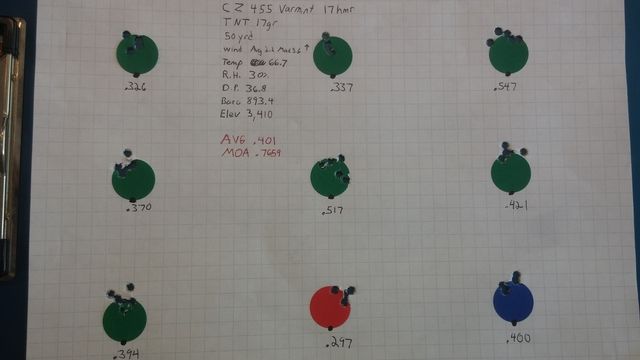 CZ 455 Varmnt 17hmr
TNT 17gr
50 yrd
Wind Avg 2.2 Max 3.6 ↑
Temp 66.7
R.H. 30%
D.P. 36.8
Baro 893.4
Elev 3,410
AVG .401
MOA .7659
.326
.337
.547
.370
.517
.421
.394
.297
.400